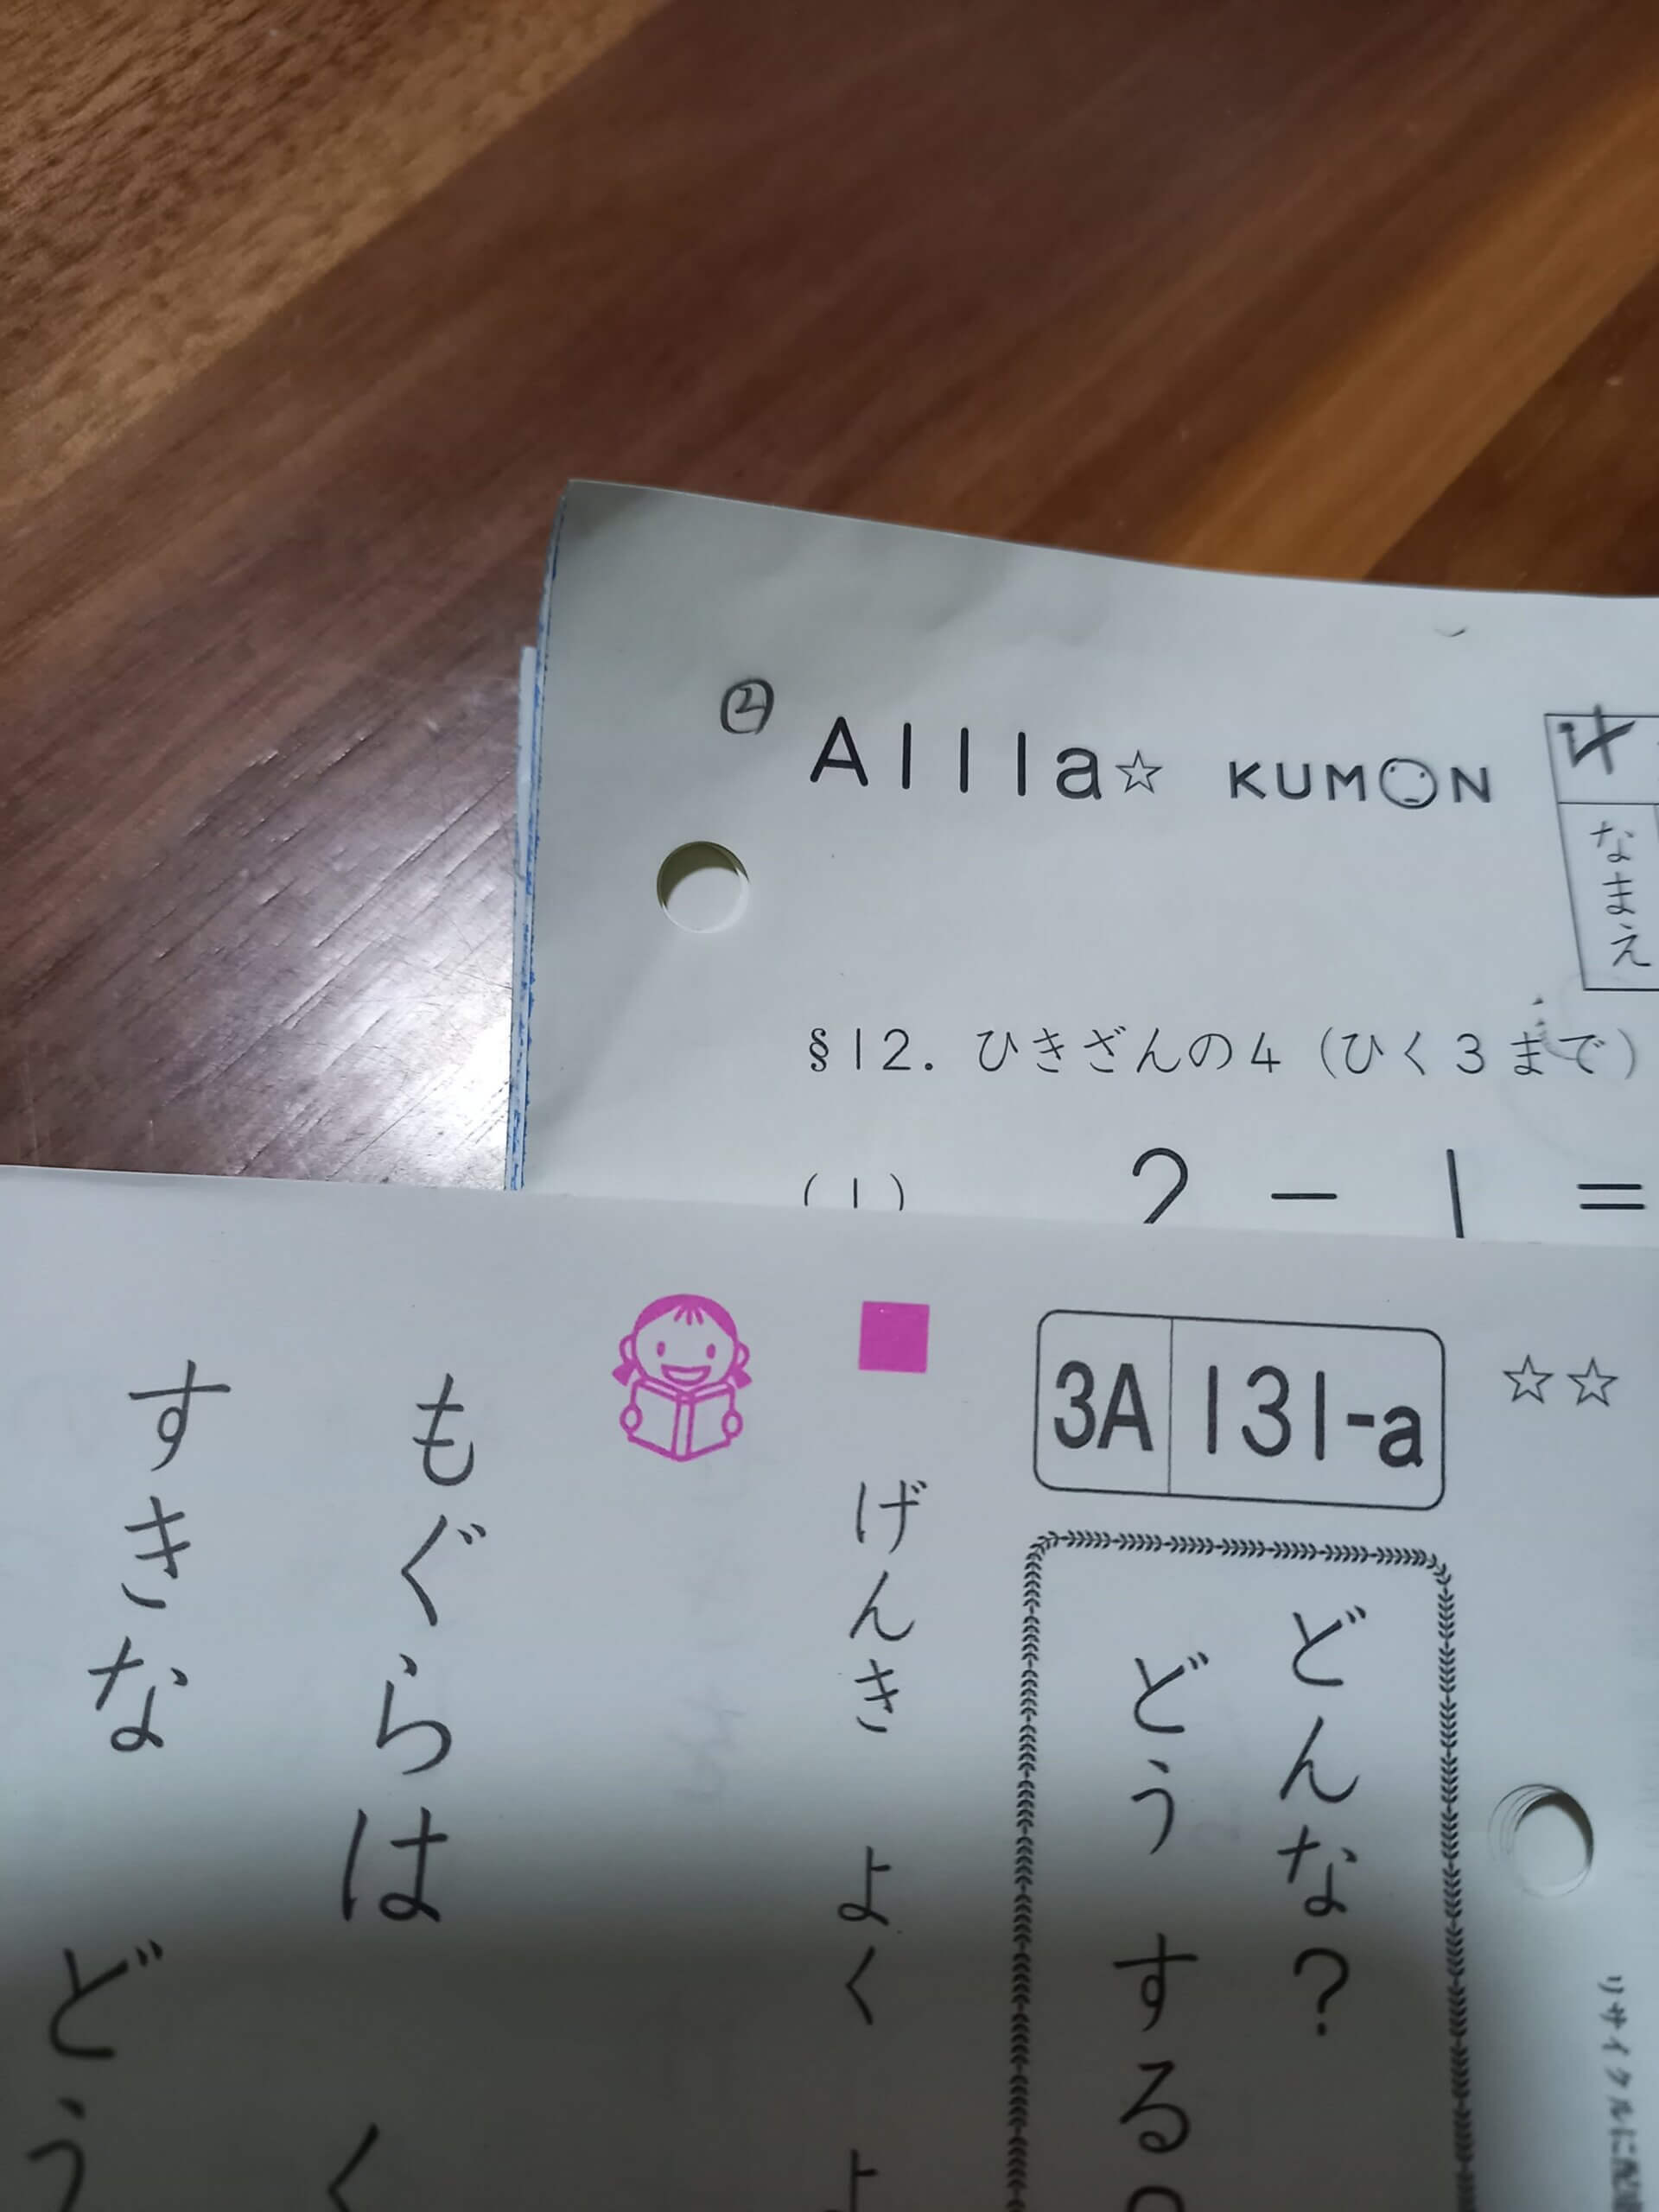 ②
A111a☆ KUMON
なまえ
§12. ひきざんの4（ひく3まで）
(1) 2 − 1 =
☆☆
3A 131-a
どんな?
どう する
げんき よく よ
もぐらは く
すきな どう